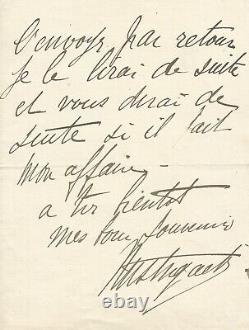 l'envoyer par retour
je le lirai de suite
et vous dirai de
suite si il fait
mon affaire —
a tot bientot
mes bons souvenirs
Mistinguett